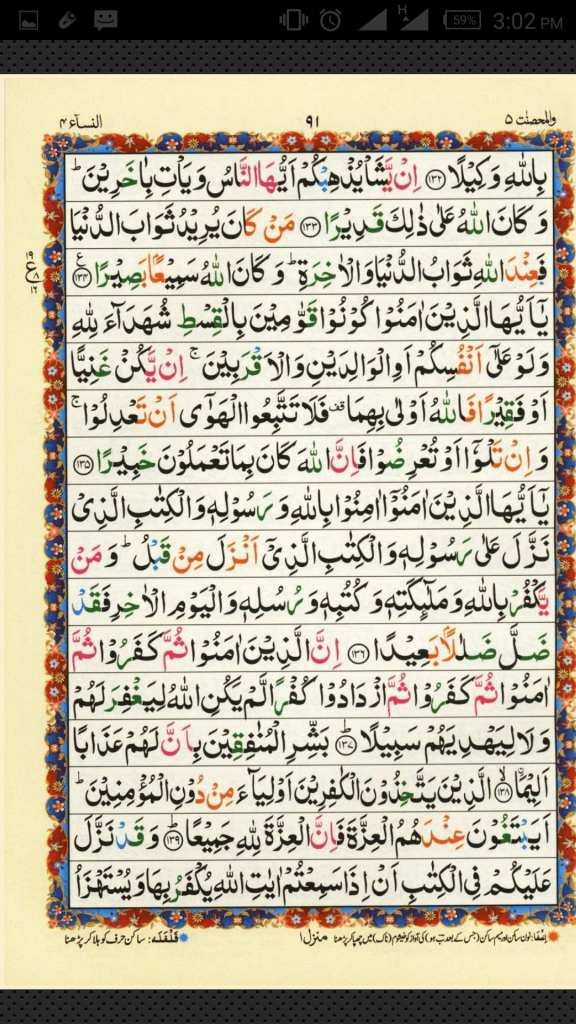 H 59% 3:02 PM
النسآء ۴ ٩١ والمحصنٰت ۵
بِاللّٰهِ وَكِيْلًا ﴿۱۳۲﴾ اِنْ يَّشَاْ يُذْهِبْكُمْ اَيُّهَا النَّاسُ وَيَاْتِ بِاٰخَرِيْنَ ؕ
وَكَانَ اللّٰهُ عَلٰى ذٰلِكَ قَدِيْرًا ﴿۱۳۳﴾ مَنْ كَانَ يُرِيْدُ ثَوَابَ الدُّنْيَا
فَعِنْدَ اللّٰهِ ثَوَابُ الدُّنْيَا وَالْاٰخِرَةِ ؕ وَكَانَ اللّٰهُ سَمِيْعًۢا بَصِيْرًا ﴿۱۳۴﴾ ع
۱۹ ع ۸ ۱۶
يٰۤاَيُّهَا الَّذِيْنَ اٰمَنُوْا كُوْنُوْا قَوّٰمِيْنَ بِالْقِسْطِ شُهَدَآءَ لِلّٰهِ
وَلَوْ عَلٰۤى اَنْفُسِكُمْ اَوِ الْوَالِدَيْنِ وَالْاَقْرَبِيْنَ ۚ اِنْ يَّكُنْ غَنِيًّا
اَوْ فَقِيْرًا فَاللّٰهُ اَوْلٰى بِهِمَا ۟ فَلَا تَتَّبِعُوا الْهَوٰۤى اَنْ تَعْدِلُوْا ۚ
وَاِنْ تَلْوٗۤا اَوْ تُعْرِضُوْا فَاِنَّ اللّٰهَ كَانَ بِمَا تَعْمَلُوْنَ خَبِيْرًا ﴿۱۳۵﴾
يٰۤاَيُّهَا الَّذِيْنَ اٰمَنُوْۤا اٰمِنُوْا بِاللّٰهِ وَرَسُوْلِهٖ وَالْكِتٰبِ الَّذِيْ
نَزَّلَ عَلٰى رَسُوْلِهٖ وَالْكِتٰبِ الَّذِيْۤ اَنْزَلَ مِنْ قَبْلُ ؕ وَمَنْ
يَّكْفُرْ بِاللّٰهِ وَمَلٰٓئِكَتِهٖ وَكُتُبِهٖ وَرُسُلِهٖ وَالْيَوْمِ الْاٰخِرِ فَقَدْ
ضَلَّ ضَلٰلًۢا بَعِيْدًا ﴿۱۳۶﴾ اِنَّ الَّذِيْنَ اٰمَنُوْا ثُمَّ كَفَرُوْا ثُمَّ
اٰمَنُوْا ثُمَّ كَفَرُوْا ثُمَّ ازْدَادُوْا كُفْرًا لَّمْ يَكُنِ اللّٰهُ لِيَغْفِرَ لَهُمْ
وَلَا لِيَهْدِيَهُمْ سَبِيْلًا ﴿۱۳۷﴾ؕ بَشِّرِ الْمُنٰفِقِيْنَ بِاَنَّ لَهُمْ عَذَابًا
اَلِيْمًا ﴿۱۳۸﴾ۙ الَّذِيْنَ يَتَّخِذُوْنَ الْكٰفِرِيْنَ اَوْلِيَآءَ مِنْ دُوْنِ الْمُؤْمِنِيْنَ ؕ
اَيَبْتَغُوْنَ عِنْدَهُمُ الْعِزَّةَ فَاِنَّ الْعِزَّةَ لِلّٰهِ جَمِيْعًا ﴿۱۳۹﴾ؕ وَقَدْ نَزَّلَ
عَلَيْكُمْ فِى الْكِتٰبِ اَنْ اِذَا سَمِعْتُمْ اٰيٰتِ اللّٰهِ يُكْفَرُ بِهَا وَيُسْتَهْزَاُ
اِخفا: نون ساکن اور میم ساکن (جس کے بعد ب ہو) کی آواز کو خیشوم (ناک) میں چھپا کر پڑھنا منزل ۱ قلقلہ: ساکن حرف کو ہلا کر پڑھنا